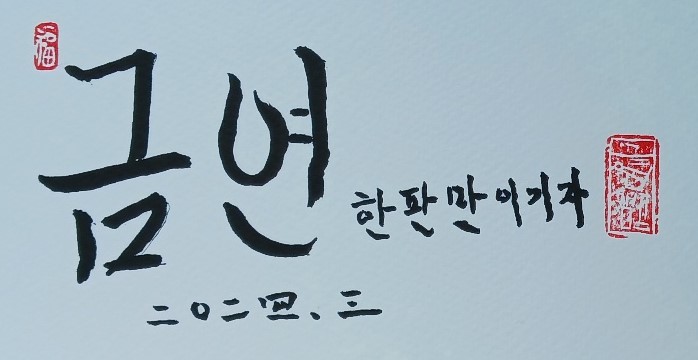 福
금연
한판만이기자
二〇二四.三